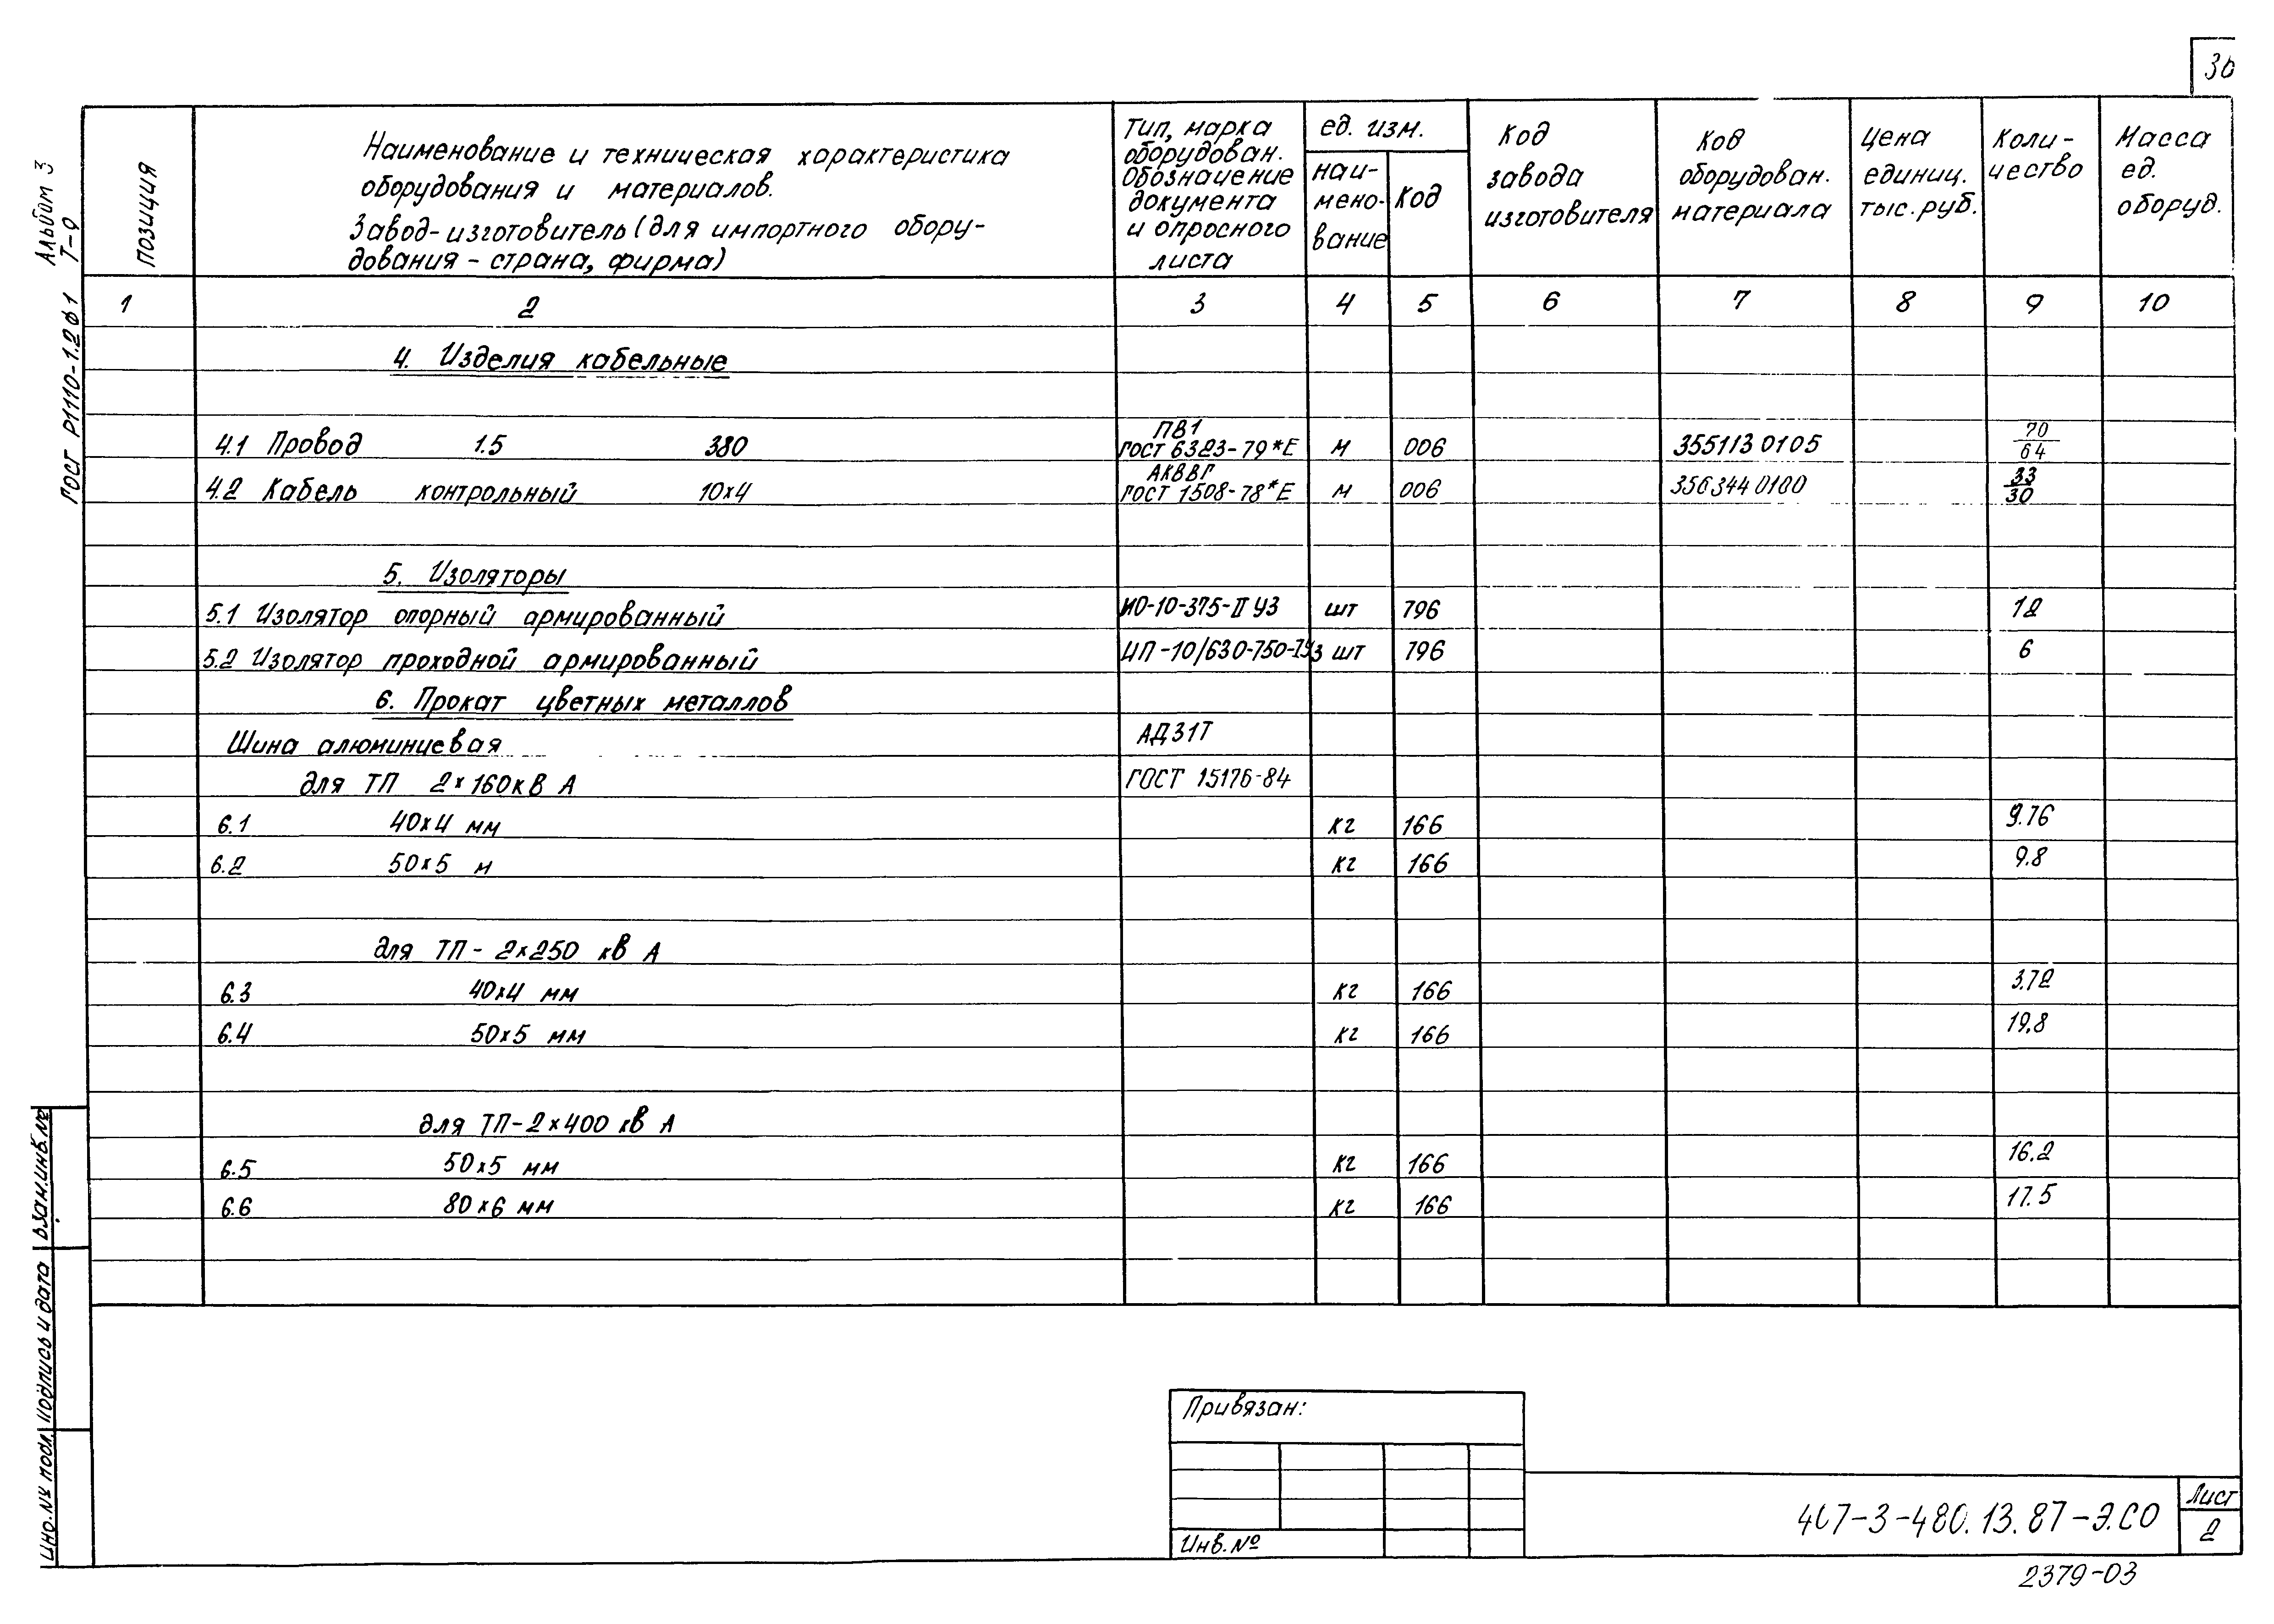 36
Альбом 3
Т-9
ГОСТ Р1110-1.2Ф1
Позиция
Наименование и техническая характеристика
оборудования и материалов.
Завод-изготовитель (для импортного обору-
дования - страна, фирма)
Тип, марка
оборудован.
Обозначение
документа
и опросного
листа
ед. изм.
наи-
мено-
вание
Код
Код
завода
изготовителя
Код
оборудован.
материала
Цена
единиц.
тыс. руб.
Коли-
чество
Масса
ед.
оборуд.
1 2 3 4 5 6 7 8 9 10
4. Изделия кабельные
4.1 Провод 1.5 380 ПВ1 ГОСТ 6323-79*Е м 006 355113 0105 70/64
4.2 Кабель контрольный 10х4 АКВВГ ГОСТ 1508-78*Е м 006 356344 0100 33/30
5. Изоляторы
5.1 Изолятор опорный армированный ИО-10-375-II У3 шт 796 12
5.2 Изолятор проходной армированный ИП-10/630-750- шт 796 6
6. Прокат цветных металлов
Шина алюминиевая АД31Т
для ТП 2х160кВ А ГОСТ 15176-84
6.1 40х4 мм кг 166 9.76
6.2 50х5 м кг 166 9.8
для ТП- 2х250 кВ А
6.3 40х4 мм кг 166 3.72
6.4 50х5 мм кг 166 19.8
для ТП-2х400 кВ А
6.5 50х5 мм кг 166 16.2
6.6 80х6 мм кг 166 17.5
Взам.инв.№
Подпись и дата
Инв.№ подл.
Привязан:
Инв.№
407-3-480.13.87-Э.СО
Лист
2
2379-03